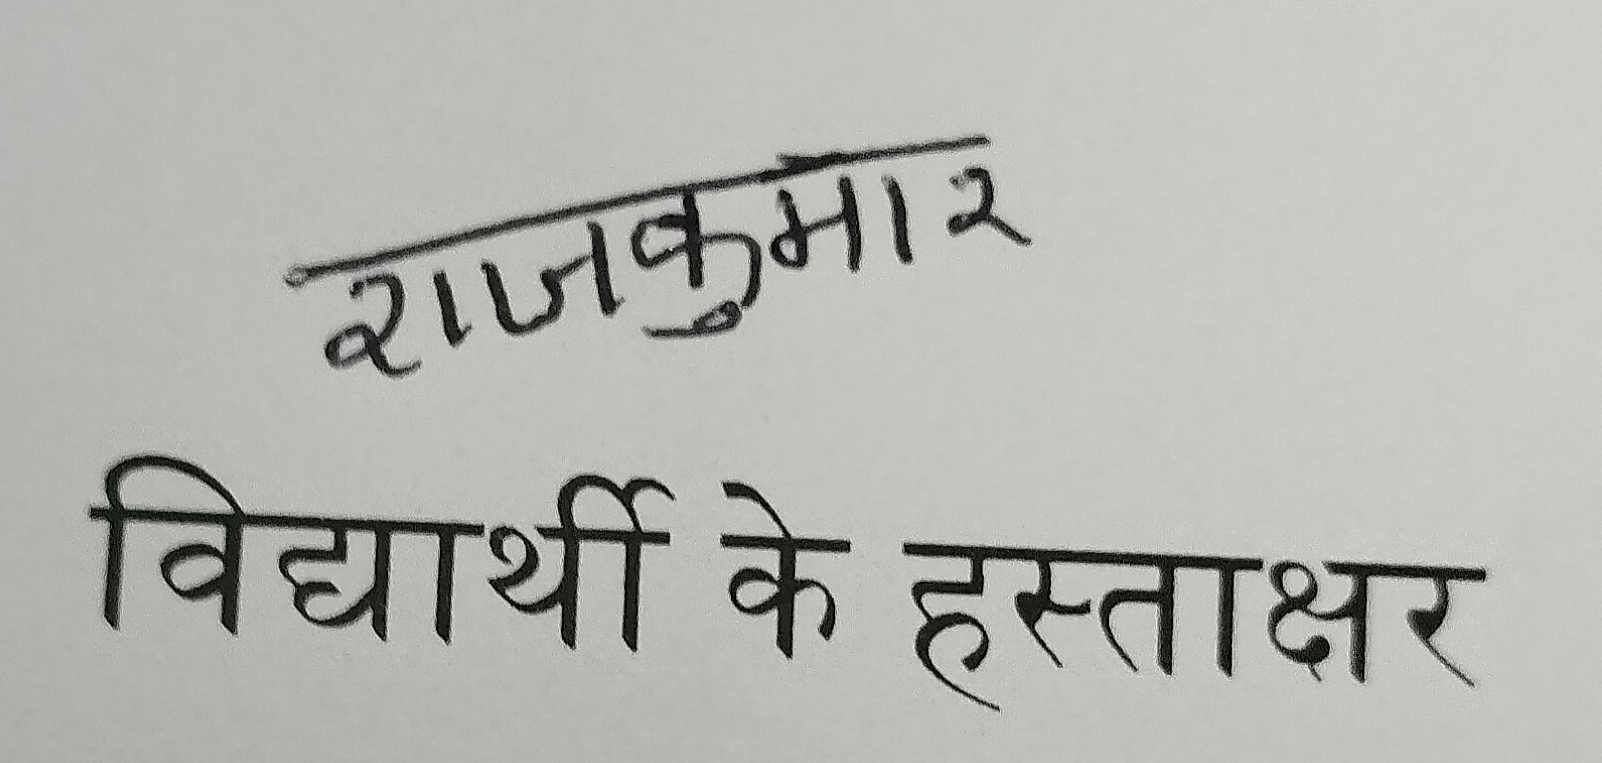 राजकुमार
विद्यार्थी के हस्ताक्षर